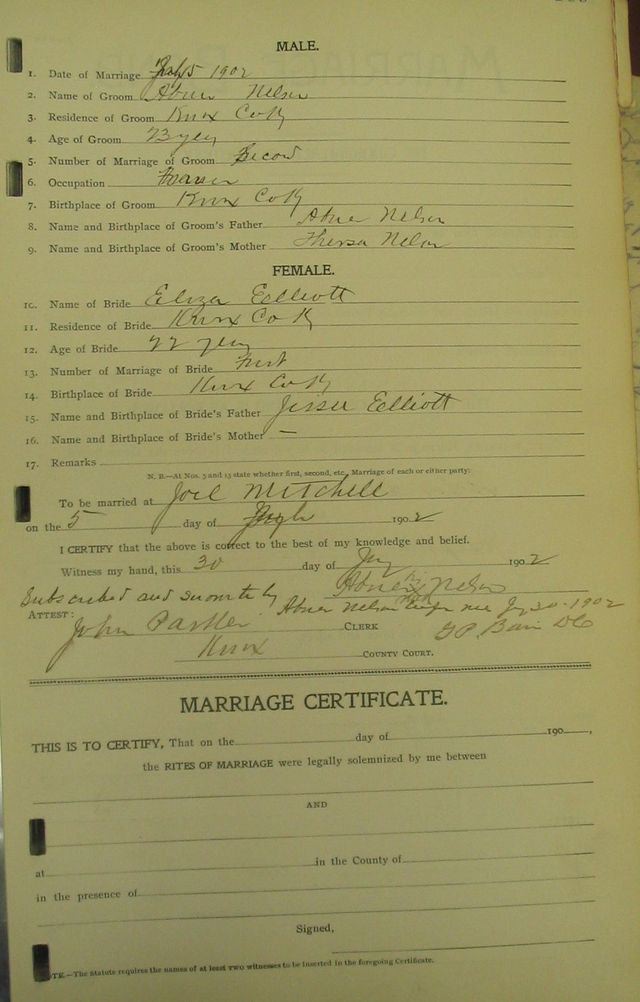 MALE.
1. Date of Marriage 5 1902
2. Name of Groom Abner Nelson
3. Residence of Groom Knox Co Ky
4. Age of Groom 23 year
5. Number of Marriage of Groom Second
6. Occupation Farmer
7. Birthplace of Groom Knox Co Ky
8. Name and Birthplace of Groom's Father Abner Nelson
9. Name and Birthplace of Groom's Mother Thersa Nelson
FEMALE.
10. Name of Bride Eliza Elliott
11. Residence of Bride Knox Co Ky
12. Age of Bride 22 year
13. Number of Marriage of Bride First
14. Birthplace of Bride Knox Co Ky
15. Name and Birthplace of Bride's Father Jesse Elliott
16. Name and Birthplace of Bride's Mother —
17. Remarks
N. B.—At Nos. 5 and 13 state whether first, second, etc., Marriage of each or either party:
To be married at Joel Mitchell
on the 5 day of 1902
I CERTIFY that the above is correct to the best of my knowledge and belief.
Witness my hand, this 30 day of 1902
Abner Nelson
Subscribed and sworn to by Abner Nelson before me 30-1902
ATTEST: John Parker CLERK DC
Knox COUNTY COURT.
MARRIAGE CERTIFICATE.
THIS IS TO CERTIFY, That on the day of 190 ,
the RITES OF MARRIAGE were legally solemnized by me between
AND
at in the County of
in the presence of
Signed,
NOTE.—The Statute requires the names of at least two witnesses to be inserted in the foregoing Certificate.